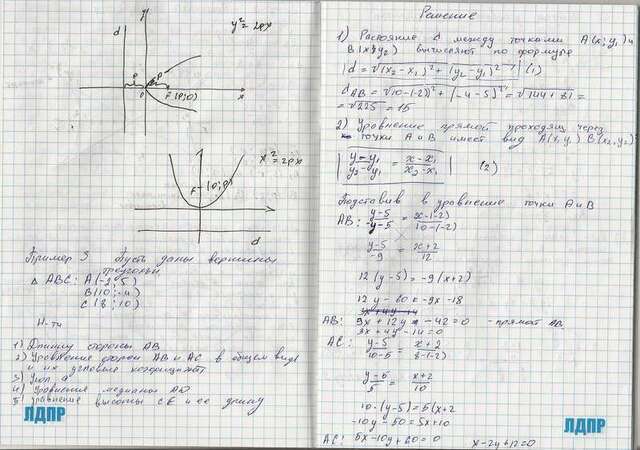 y
d
y² = 2px
p
F(p;0)
x
x² = 2px
F
(0;p)
d
Пример 3 Пусть даны вершины
треугольн
Δ ABC: A(-2;5)
B(10;-4)
C(8;10)
Н-ти
1) Длину стороны AB
2) Уравнение сторон AB и AC в общем виде
и их угловые
3) Угол
4) Уравнение медианы AD
5 уравнение высоты CE и ее длину
ЛДПР
Решение
1) Растояние d между точками A(x₁y₁) и
B(x₂y₂) вычисляют по формуле
d = √(x₂-x₁)² + (y₂-y₁)² (1)
d AB = √(10-(-2))² + (-4-5)² = √144+81 =
= √225 = 15
2) Уравнение прямой проходящ через
точки A и B имеет вид A(x₁y₁) B(x₂,y₂)
y-y₁/y₂-y₁ = x-x₁/x₂-x₁ (2)
Подставив в уравнение точки A и B
AB: y-5/-4-5 = x-(-2)/10-(-2)
y-5/-9 = x+2/12
12(y-5) = -9(x+2)
12y-60 = -9x-18
AB: 9x+12y-42=0 - прямой AB
3x+4y-14=0
AC: y-5/10-5 = x+2/8-(-2)
y-5/5 = x+2/10
10·(y-5) = 5(x+2
-10y-50 = 5x+10
AC: 5x-10y+60=0 x-2y+12=0
ЛДПР